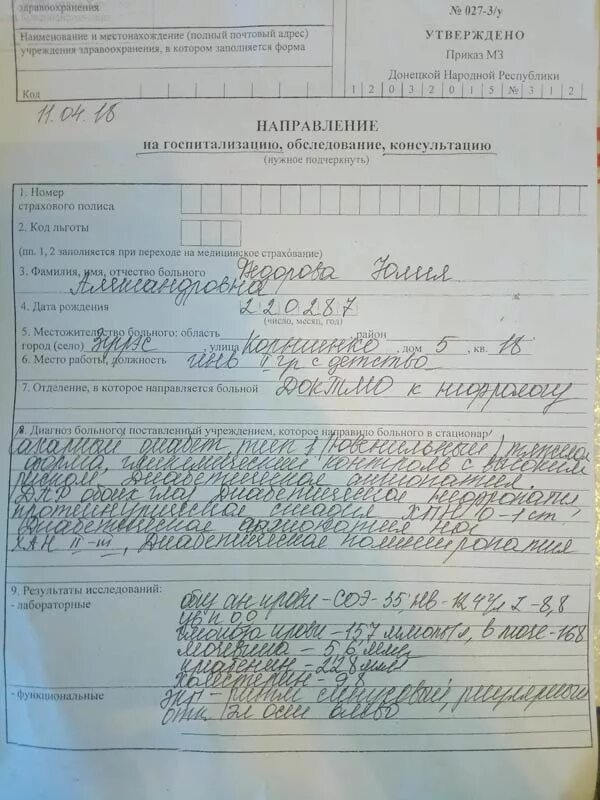 здравоохранения
Наименование и местонахождение (полный почтовый адрес)
учреждения здравоохранения, в котором заполняется форма
Код
№ 027-3/у
УТВЕРЖДЕНО
Приказ МЗ
Донецкой Народной Республики
1 2 0 3 2 0 1 5 № 3 1 2
11.04.18
НАПРАВЛЕНИЕ
на госпитализацию, обследование, консультацию
(нужное подчеркнуть)
1. Номер
страхового полиса
2. Код льготы
(пп. 1, 2 заполняется при переходе на медицинское страхование)
3. Фамилия, имя, отчество больного Федорова Юлия
Александровна
4. Дата рождения 2 2 0 2 8 7
(число, месяц, год)
5. Местожительство больного: область район
город (село) Зугрэс, улица Корниенко, дом 5, кв. 18
6. Место работы, должность инв II гр с детства
7. Отделение, в которое направляется больной ДОКТМО к нефрологу
8. Диагноз больного, поставленный учреждением, которое направило больного в стационар
Сахарный диабет, тип 1 (ювенильный), тяжелая
форма, гликемический контроль с высоким
риском. Диабетическая ангиопатия.
ДПР обоих глаз, Диабетическая нефропатия
протеинурическая стадия ХПН 0-1 ст
Диабетическая ангиопатия ног
ХАН II-III, Диабетическая полинейропатия
9. Результаты исследований:
- лабораторные общ ан крови - СОЭ - 35, Нв - 124 г/л L - 8,8
глюкоза крови - 15,7 ммоль/л, в моче - 168
мочевина - 5,6
креатенин - 228
холестерин - 9,8
- функциональные ЭКГ - ритм синусовый, регулярный
откл эл оси влево